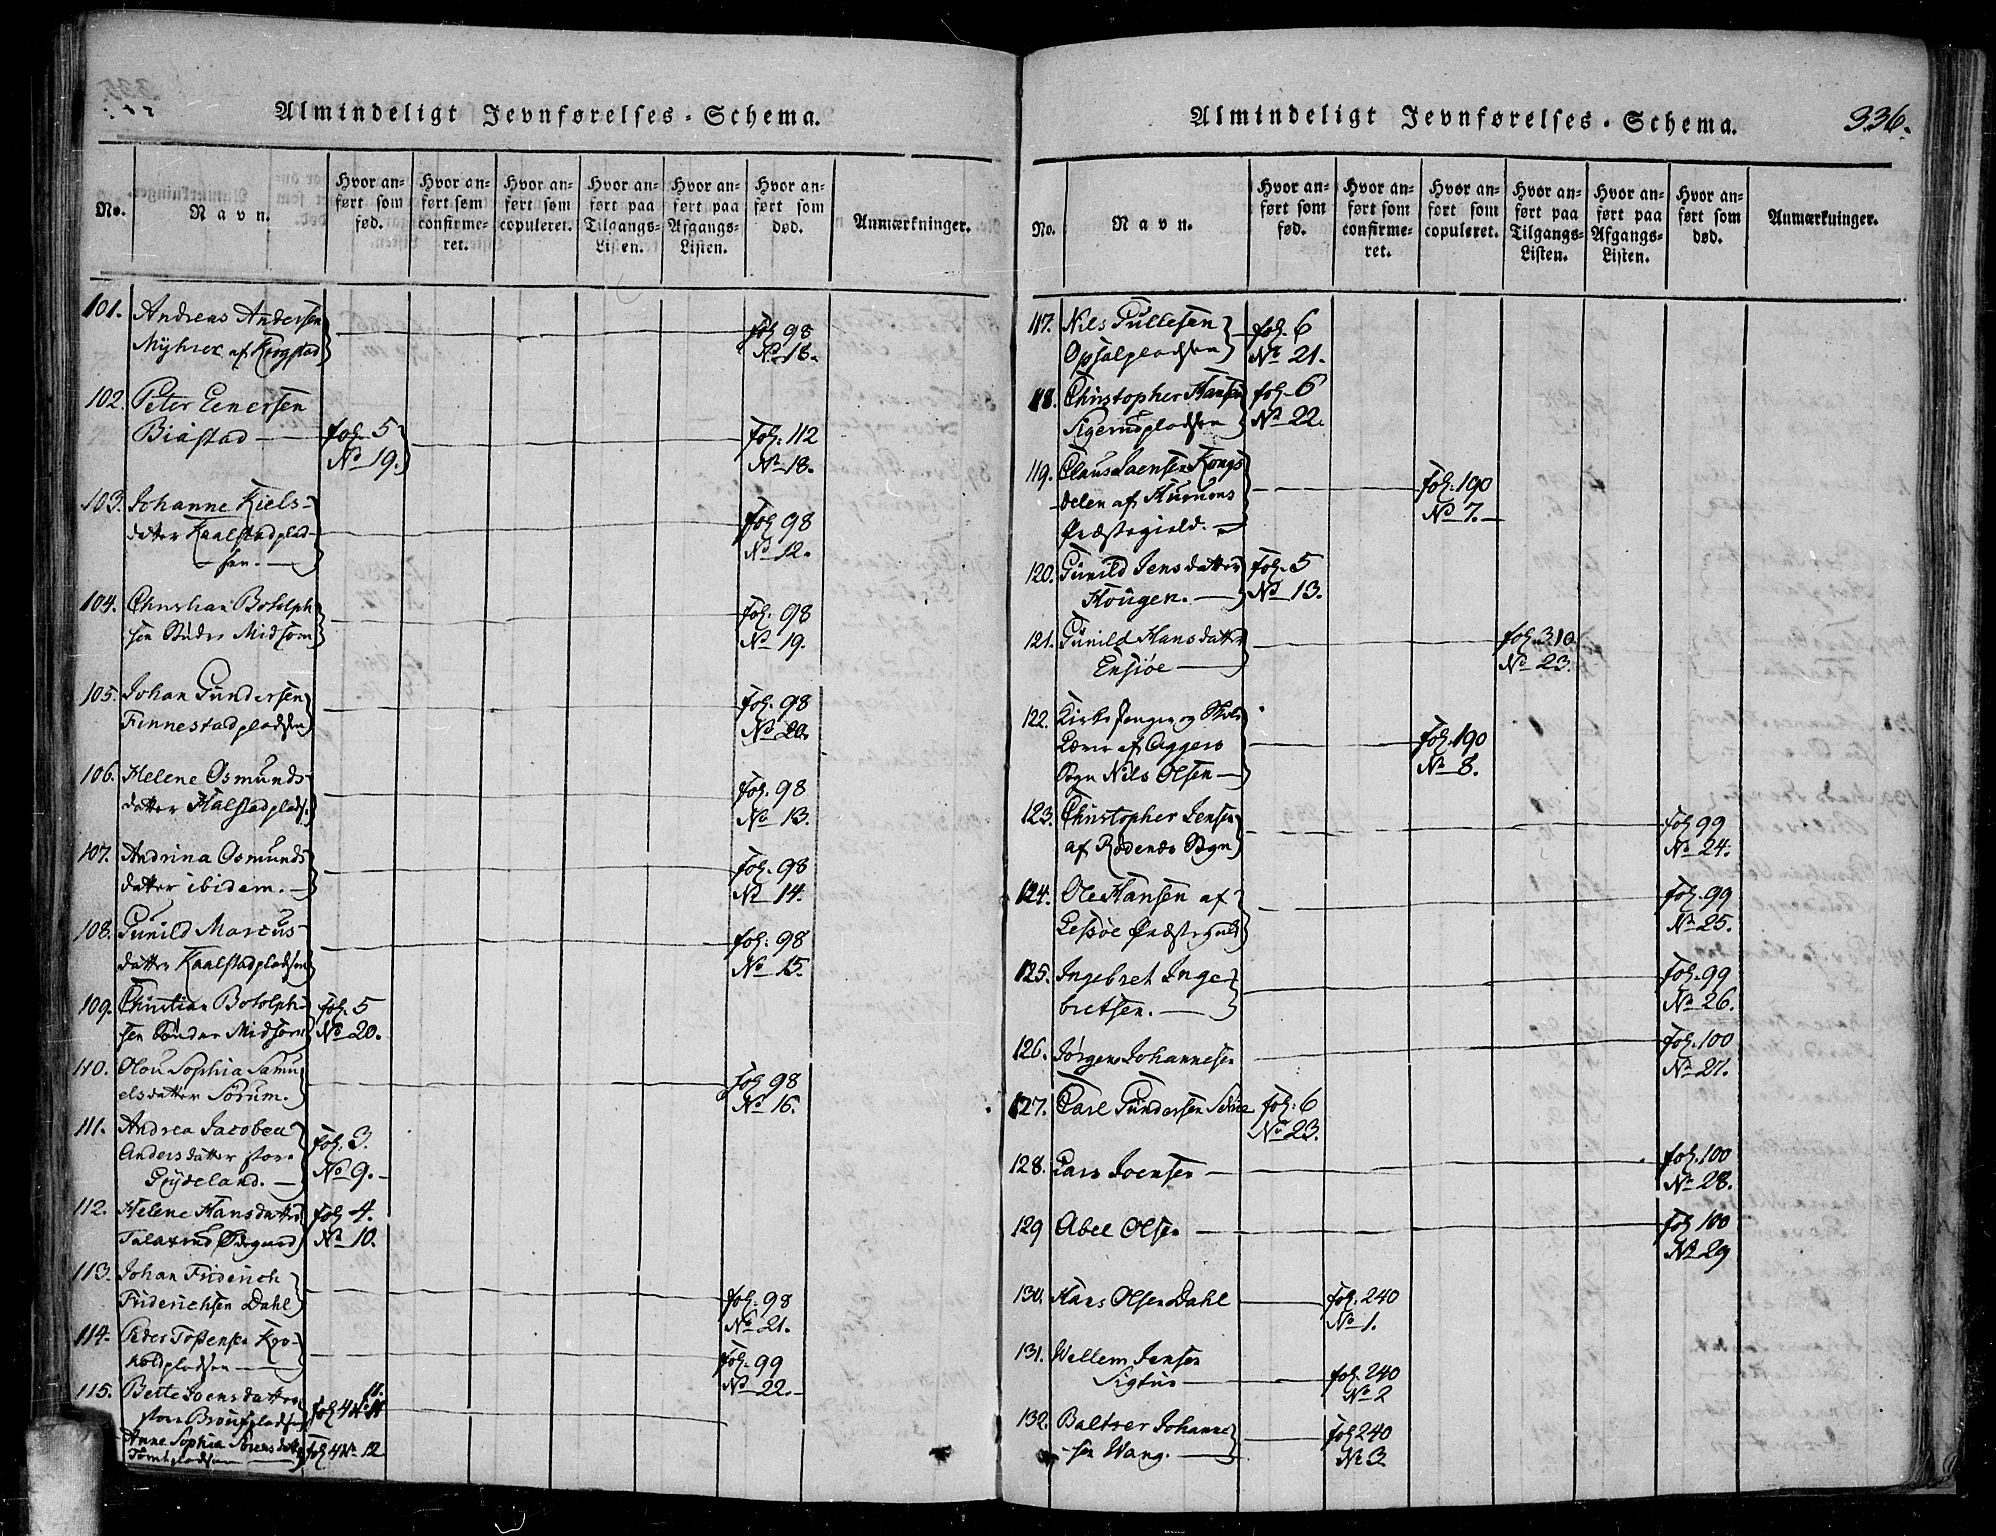 Almindeligt Jevnførelses-Schema.
No.
Navn.
Hvor anført som fød.
Hvor anført som confirmeret.
Hvor anført som copuleret.
Hvor anført paa Tilgangs-Listen.
Hvor anført paa Afgangs-Listen.
Hvor anført som død.
Anmærkninger.
101. Andreas Andersen fol 98
Myhrer af Krogstad No 18.
102. Peter Einersen
Biåstad fol. 5 fol. 112
No 19. No 18.
103. Johanne Kiels- fol 98
datter Kaalstadplad- No 12.
sen.
104. Christian Botolph fol. 98
sen Sndre Midsom No 19.
105. Johan Gundersen fol. 98
Finnestadpladsen No 20.
106. Helene Osmunds fol. 98
datter Halstadplads. No 13.
107. Andrina Osmunds fol. 98
datter ibidem. No 14.
108. Gunild Marcus fol. 98
datter Kaalstadpladsen No 15.
109. Christian Botolph fol. 5
sen Sønder Midsom No 20.
110. Olou Sophia Samu fol 98
elsdatter Sørum. No 16.
111. Andrea Jacobea fol. 3.
Andersdatter store No 9.
Gøydeland.
112. Helene Hansdatter fol 4.
No 10.
113. Johan Friderich
Friderichsen Dahl fol. 98
No 21.
114. Peder Tostensen Kro- fol. 99
holdpladsen No 22.
115. Berte Joensdatter 11.
store fol 4 No
Anne Sophia Sørensdatter fol 4 No 12
Tomtepladsen
Almindeligt Jevnførelses-Schema. 336.
No.
Navn.
Hvor anført som fød.
Hvor anført som confirmeret.
Hvor anført som copuleret.
Hvor anført paa Tilgangs-Listen.
Hvor anført paa Afgangs-Listen.
Hvor anført som død.
Anmærkninger.
117. Nils Gullesen fol. 6
Opsalpladsen No 21.
118. Christopher Hansen fol. 6
Sigerudpladsen No 22.
119. Claus Joensen Kongs fol. 190
delen af Hurums No 7.
Præstegield.
120. Gunild Jensdatter fol. 5
Hougen. No 13.
121. Gunild Hansdatter fol. 310.
Ensiøe No 23.
122. Kirkesanger og Skole
Lærer af Aggers fol. 190
Sogn Nils Olsen No 8.
123. Christopher Jensen fol 99
af Rødenæs Sogn No 24.
124. Ole Hansen af fol. 99
Lessøe Præstegield No 25.
125. Ingebret Inge- fol. 99
bretsen. No 26.
126. Jørgen Johannesen fol. 100
No 27.
127. Carl Gundersen fol. 6
No 23.
128. Lars Joensen fol. 100
No 28.
129 Abel Olsen fol 100
No 29
130. Hans Olsen Dahl fol. 240
No 1.
131. Willem Jensen fol. 240
No 2
132. Baltzer Johanne fol 240
sen Wang. No 3